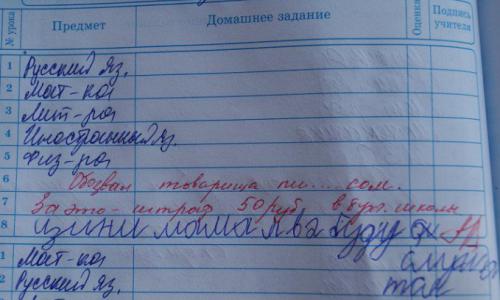 № урока Предмет Домашнее задание Оценка Подпись учителя
1 Русский яз.
2 Мат-ка
3 Лит-ра
4 Иностранный яз.
5 Физ-ра
6 Обозвал товарища пи....сом.
7 За это - штраф 50 руб. в буг. школы
8 мама я буду
1 Мат-ка
2 Русский яз. так